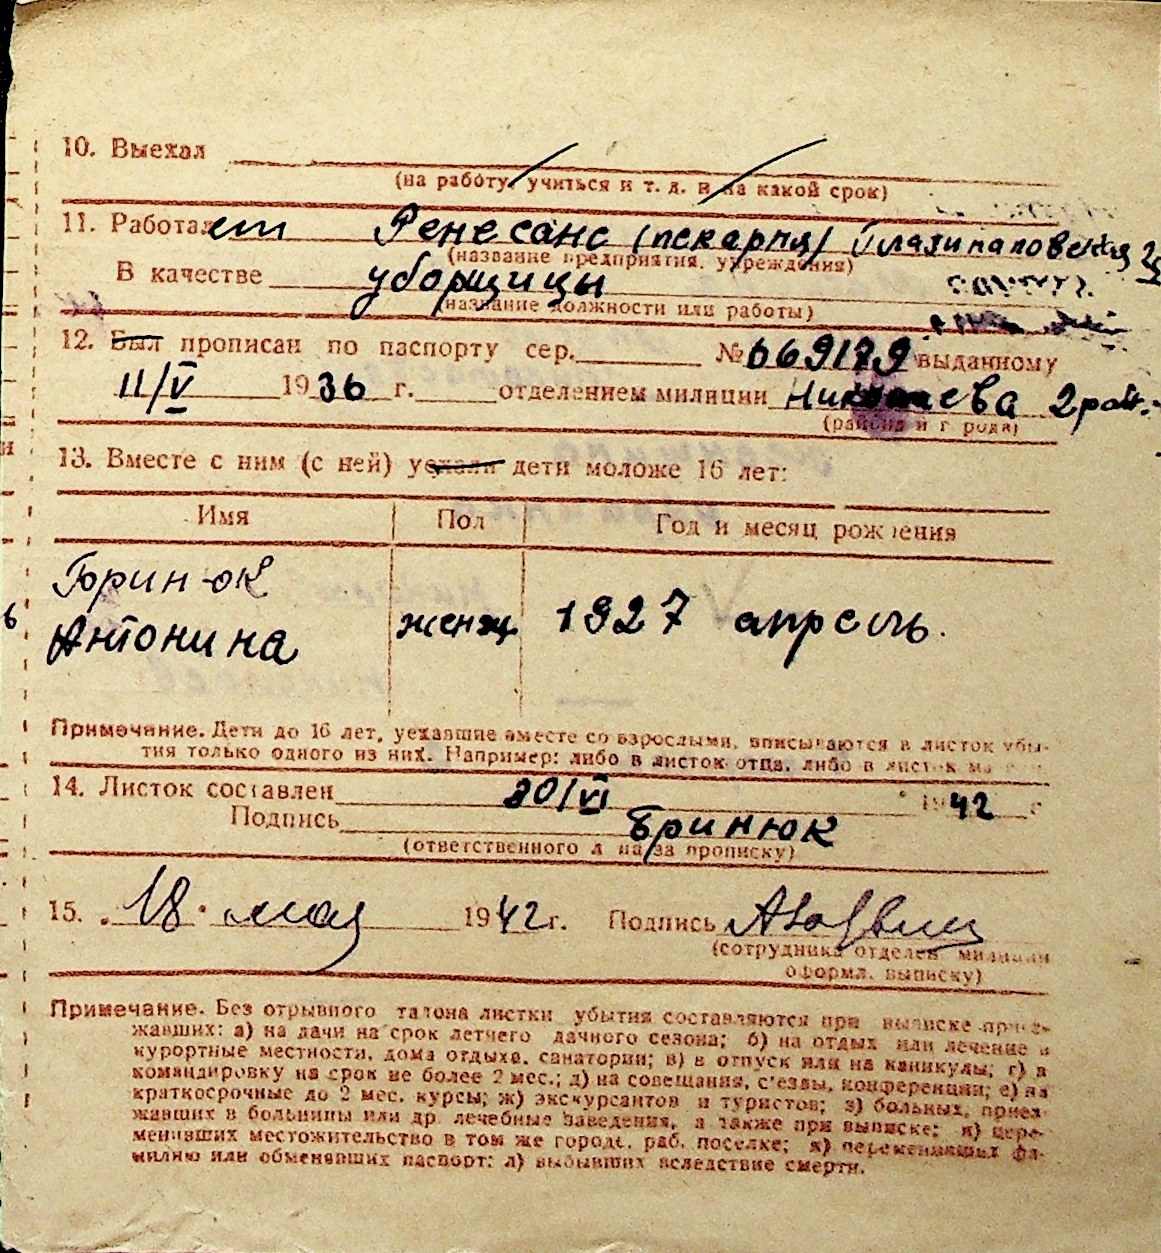 10. Выехал
(на работу, учиться и т. д. и на какой срок)
11. Работает Ренесанс (пекарня)
(название предприятия, учреждения)
В качестве уборщицы
(название должности или работы)
12. Был прописан по паспорту сер. № 669179 выданному
11/V 1936 г. отделением милиции Николаева 2 рай.
(района и города)
13. Вместе с ним (с ней) уехали дети моложе 16 лет:
Имя Пол Год и месяц рождения
Бринюк
Антонина женщ. 1927 апрель.
Примечание. Дети до 16 лет, уехавшие вместе со взрослыми, вписываются в листок убы-
тия только одного из них. Например: либо в листок отца, либо в листок
14. Листок составлен 20/VI 1942 г
Подпись Бринюк
(ответственного лица за прописку)
15. 18 мая 1942 г. Подпись
(сотрудника отделен. милиции
оформл. выписку)
Примечание. Без отрывного талона листки убытия составляются при выписке приез-
жавших: а) на дачи на срок летнего дачного сезона; б) на отдых или лечение в
курортные местности, дома отдыха, санатории; в) в отпуск или на каникулы; г) в
командировку на срок не более 2 мес.; д) на совещания, с'езды, конференции; е) на
краткосрочные до 2 мес. курсы; ж) экскурсантов и туристов; з) больных, приез-
жавших в больницы или др. лечебные заведения, а также при выписке; и) пере-
менивших местожительство в том же городе, раб. поселке; к) переменивших фа-
милию или обменявших паспорт; л) выбывших вследствие смерти.